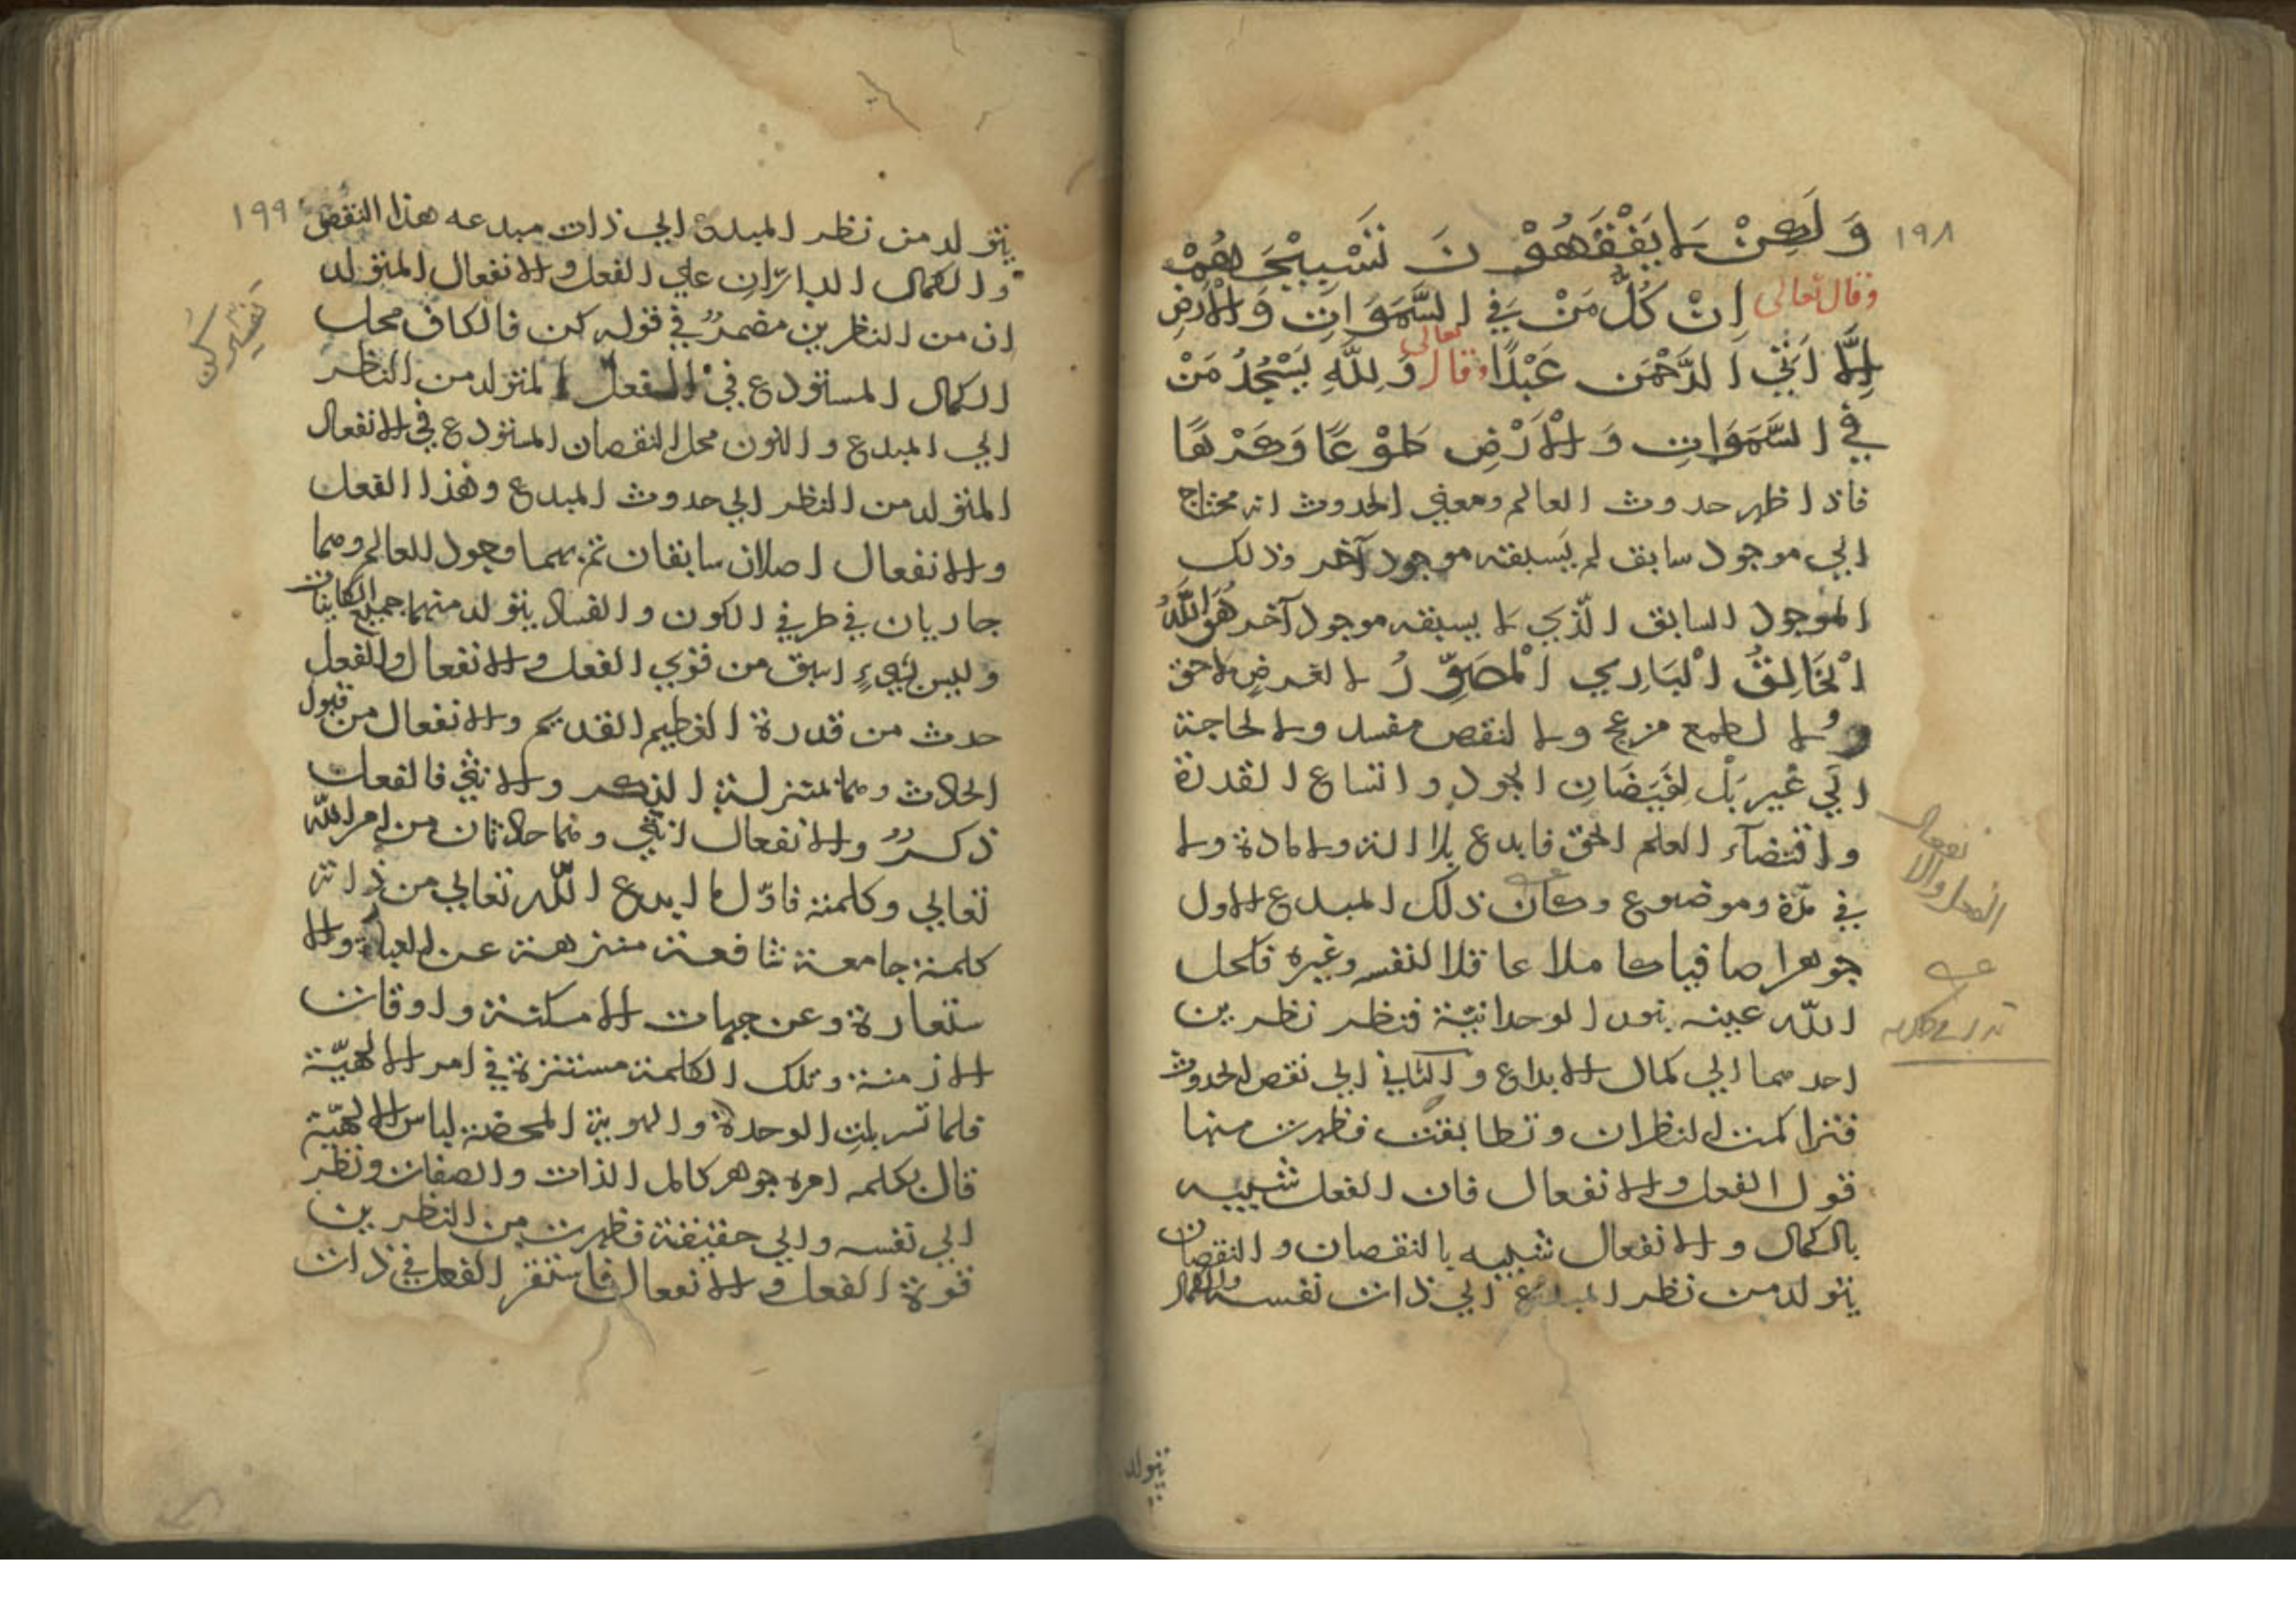 ١٩٨
وَلَكِنْ لَا يَفْقَهُوْنَ تَسْبِيْحَهُمْ
وقال تعالى اِنْ كُلُّ مَنْ فِي السَّمَوَاتِ وَالْاَرْضِ
اِلَّا اَتِي الرَّحْمَن عَبْدًا وقال تعالى وَلِلَّهِ يَسْجُدُ مَنْ
فِي السَّمَوَاتِ وَالْاَرْضِ طَوْعًا وَكَرْهًا
فاذا ظهر حدوث العالم ومعنى الحدوث انه محتاج
الي موجود سابق لم يسبقه موجود آخر وذلك
الموجود السابق الّذي لا يسبقه موجود آخر هُوَ اللَّهُ
الْخَالِقُ الْبَارِي الْمُصَوِّرُ لا لغرض لاحق
ولا لطمع مزعج ولا لنقص مفسد ولا لحاجة
الَي غير بَلْ لِفَيَضَانِ الجود واتساع القدرة
واقتضآء العلم الحق فابدع بلا الة ولا مادة ولا
في مدّة وموضوع وكان ذلك المبدع الاول
جوهرا صافيا كاملا عاقلا لنفسه وغيره فكحل
اللّه عينه بنور الوحدانيّة فنظر نظرين
احدهما الي كمال الابداع والثاني الي نقص الحدوث
فتراكمت النظران وتطابقت فظهرت منها
قول الفعل والانفعال فان الفعل شبيه
بالكمال والانفعال شبيه بالنقصان والنقصان
يتولد من نظر المبدع الي ذات نفسه والكمال
الفعل والانفعال
يتولد
١٩٩
يتولد من نظر المبدع الي ذات مبدعه هذا النقص
والكمال الدائران علي الفعل والانفعال المتولد
ان من النظرين مضمرٌ في قوله كن فالكاف محل
الكمال المستودع في الفعل المتولد من النظر
الي المبدع والنون محل النقصان المستودع في الانفعال
المتولد من النظر الي حدوث المبدع وهذا الفعل
والانفعال اصلان سابقان تم بهما وجود للعالم وهما
جاريان في طرفي الكون والفساد يتولد منهما جميع الكاينات
وليس شيءٍ اسبق من قوي الفعل والانفعال والفعل
حدث من قدرة العظيم القديم والانفعال من قبول
الحادث وهما بمنزلة الذكر والانثي فالفعل
ذكرٌ والانفعال انثي وهما حادثان من امر اللّه
تعالي وكلمته فاوّل ما ابدع اللّه تعالي من ذاته
كلمة جامعة نافعة منزهة عن العبارة والا
ستعارة وعن جهات الامكنة واوقات
الازمنة وتلك الكلمة مستترة في امر الالهيّة
فلما تسربلتِ الوحدة والهوية المحضة لباس الالهيّة
قال بكلمه امره جوهر كامل الذات والصفات ونظر
الي نفسه والي حقيقة فظهرت من النظرين
قوة الفعل والانفعال فاستقر الفعل في ذات
تفسير كُن